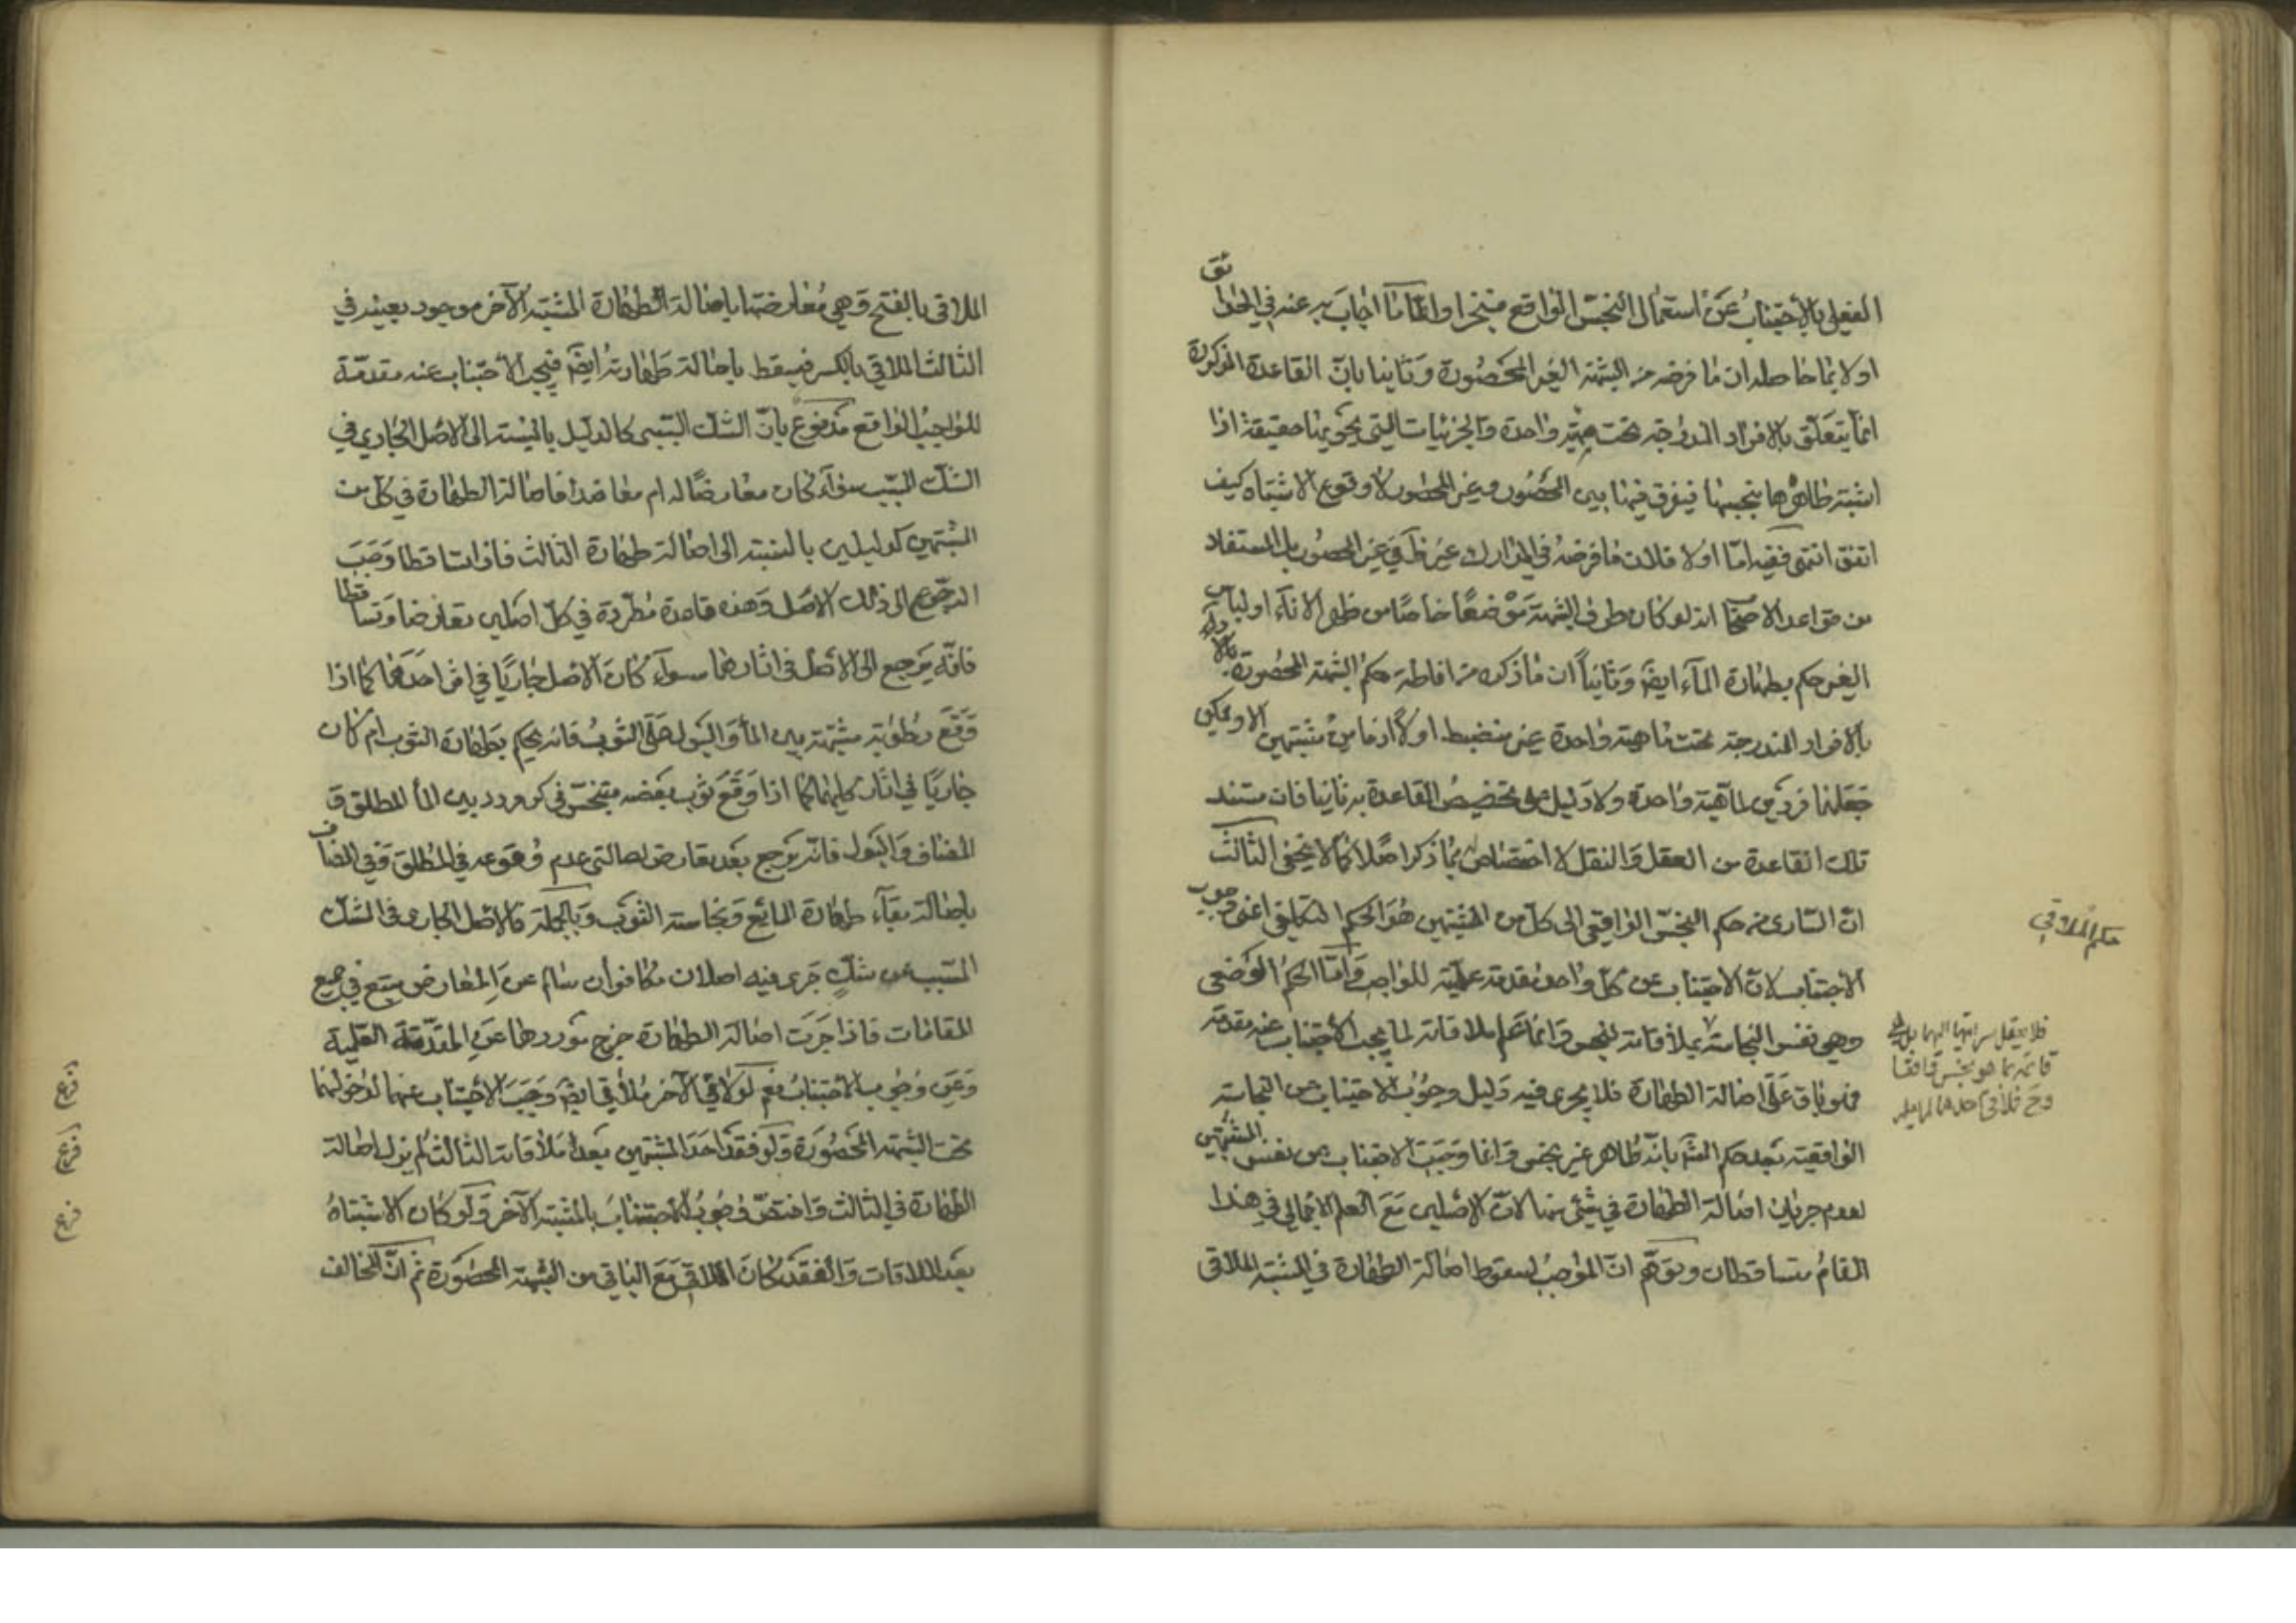 الفعلى بالاجتناب عن استعمال النجس الواقع منجزا واما ما اجاب به عنه فى الحدائق
اولا بما حاصله ان ما فرضه من الشبهة الغير المحصورة وثانيا بان القاعدة المذكورة
انما يتعلق بالافراد المندرجة تحت مهية واحدة والجزئيات التى تحويها حقيقة اذا
اشتبه طاهرها بنجسها فيفرق فيها بين المحصور وغير المحصور لا وقوع الاشتباه كيف
اتفق انتهى ففيه اما اولا فلان ما فرضه فى المدارك غير ظ فى غير المحصور بل المستفاد
من قواعد الاصحاب انه لو كان طرف الشبهة موضعا خاصا من ظهر الاناء او لباس
الغير حكم بطهارة الماء ايضا وثانيا ان ما ذكره من اناطة حكم الشبهة المحصورة
بالافراد المندرجة تحت ماهية واحدة غير منضبط اولا اذ ما من مشتبهين الا ويمكن
جعلهما فردى ماهية واحدة ولا دليل على تخصيص القاعدة به ثانيا فان مستند
تلك القاعدة من العقل والنقل لا اختصاص له بما ذكر اصلا كما لا يخفى الثالث
ان السارى من حكم النجس الواقعى الى كل من المشتبهين هو الحكم التكليفى اعنى وجوب
الاجتناب لان الاجتناب عن كل واحد مقدمة علمية للواجب واما الحكم الوضعى
وهى نفس النجاسة بملاقاته لنجس وانما علم ملاقاته لما يجب الاجتناب عنه مقدمة
فهو باق على اصالة الطهارة فلا يجرى فيه دليل وجوب الاجتناب عن النجاسة
الواقعية بعد حكم الش بانه طاهر غير نجس وانما وجب الاجتناب عن نفس المشتبهين
لعدم جريان اصالة الطهارة فى شىء منهما لان الاصلين مع العلم الاجمالى فى هذا
المقام متساقطان وتوهم ان الموجب لسقوط اصالة الطهارة فى المشتبه الملاقى
حكم الملاقى
فلا يعقل سرايتها اليهما بل هى
قائمة بما هو نجس واقعا
وح فملاقى احدهما لم يعلم
الملاقى بالفتح وهى معارضتها باصالة الطهارة المشتبه الآخر موجود بعينه فى
الثالث الملاقى بالكسر فيسقط باصالة طهارته ايضا فيجب الاجتناب عنه مقدمة
للواجب الواقع مدفوع بان الشك السببى كالدليل بالنسبة الى الاصل الجارى فى
الشك المسبب سواء كان معارضا له ام معاضدا فاصالة الطهارة فى كل من
المشتبهين كدليلين بالنسبة الى اصالة طهارة الثالث فاذا تساقطا وجب
الرجوع الى ذلك الاصل وهذه قاعدة مطردة فى كل اصلين تعارضا وتساقطا
فانه يرجع الى الاصل فى اثارهما سواء كان الاصل جاريا فى اثر احدهما كما اذا
وقع رطوبة مشتبهة بين الماء والبول على الثوب فانه يحكم بطهارة الثوب ام كان
جاريا فى اثار كليهما كما اذا وقع ثوب بعضه متنجس فى كر مردد بين الماء المطلق و
المضاف والبول فانه يرجع بعد تعارض اصالتى عدم وقوعه فى المطلق وفى المضاف
باصالة بقاء طهارة المائع ونجاسة الثوب وبالجملة فالاصل الجارى فى الشك
المسبب عن شك جرى فيه اصلان متكافئان سالم عن المعارض متبع فى جميع
المقامات فاذا جرت اصالة الطهارة خرج موردها عن المقدمة العلمية
وعن وجوب الاجتناب نعم لو لاقى الآخر ملاق ايضا وجب الاجتناب عنهما لدخولهما
تحت الشبهة المحصورة ولو فقد احد المشتبهين بعد ملاقات الثالث لم يزل اصالة
الطهارة فى الثالث واختص وجوب الاجتناب بالمشتبه الآخر ولو كان الاشتباه
بعد الملاقات والفقد كان الملاقى مع الباقى من الشبهة المحصورة ثم ان المخالف
فرع
فرع
فرع